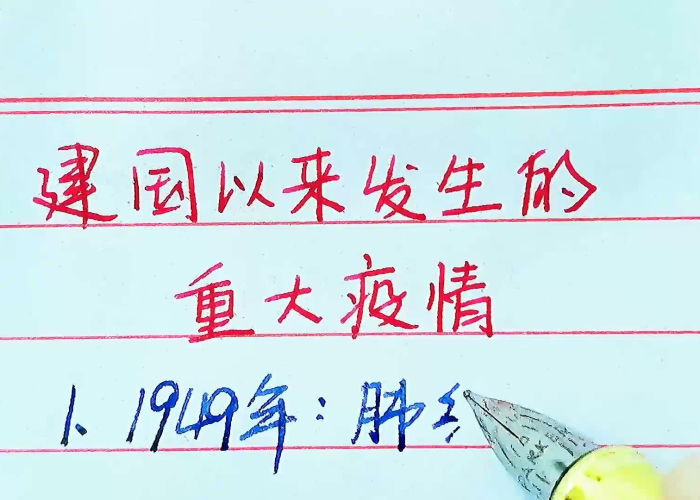 建国以来发生的
重大疫情
1、1949年：肺
PARK